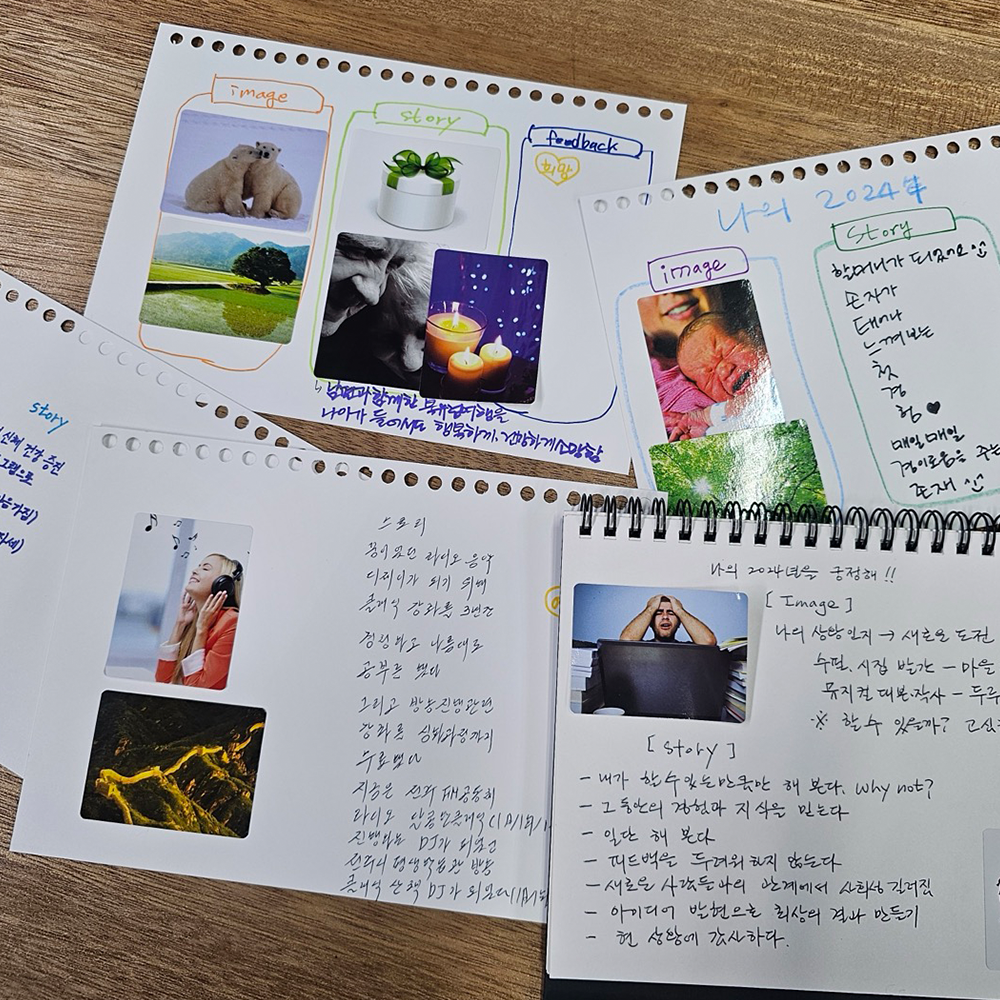 image
story
feedback
희망
남편과 함께한 북유럽여행을
나이가 들어서도 행복하기. 건강하게 소망함
나의 2024年
image
story
할머니가 되었어요
손자가
태어나
느껴보는
첫
경
험♥
매일매일
경이로움을 주는
존재
story
산책 건강 증진
스토리
꿈이였던 라디오 음악
디제이가 되기 위해
클래식 강좌를 3년간
경청하고 나름대로
공부를 했다
그리고 방송진행관련
강좌를 심화과정까지
수료했다
지금은
라디오
진행하는 DJ가 되었고
방송
클래식 산책 DJ가 되었다
나의 2024년을 긍정해!!
[Image]
나의 상황인지 → 새로운 도전
수필, 시집 발간 - 마을
뮤지컬 대본.작사 - 두루
※ 할 수 있을까? 고심
[story]
- 내가 할 수 있는 만큼만 해 본다. Why not?
- 그동안의 경험과 지식을 믿는다
- 일단 해 본다
- 피드백을 두려워 하지 않는다
- 새로운 사람들과의 관계에서 사회성 길러짐
- 아이디어 발현으로 최상의 결과 만들기
- 현 상황에 감사하다.